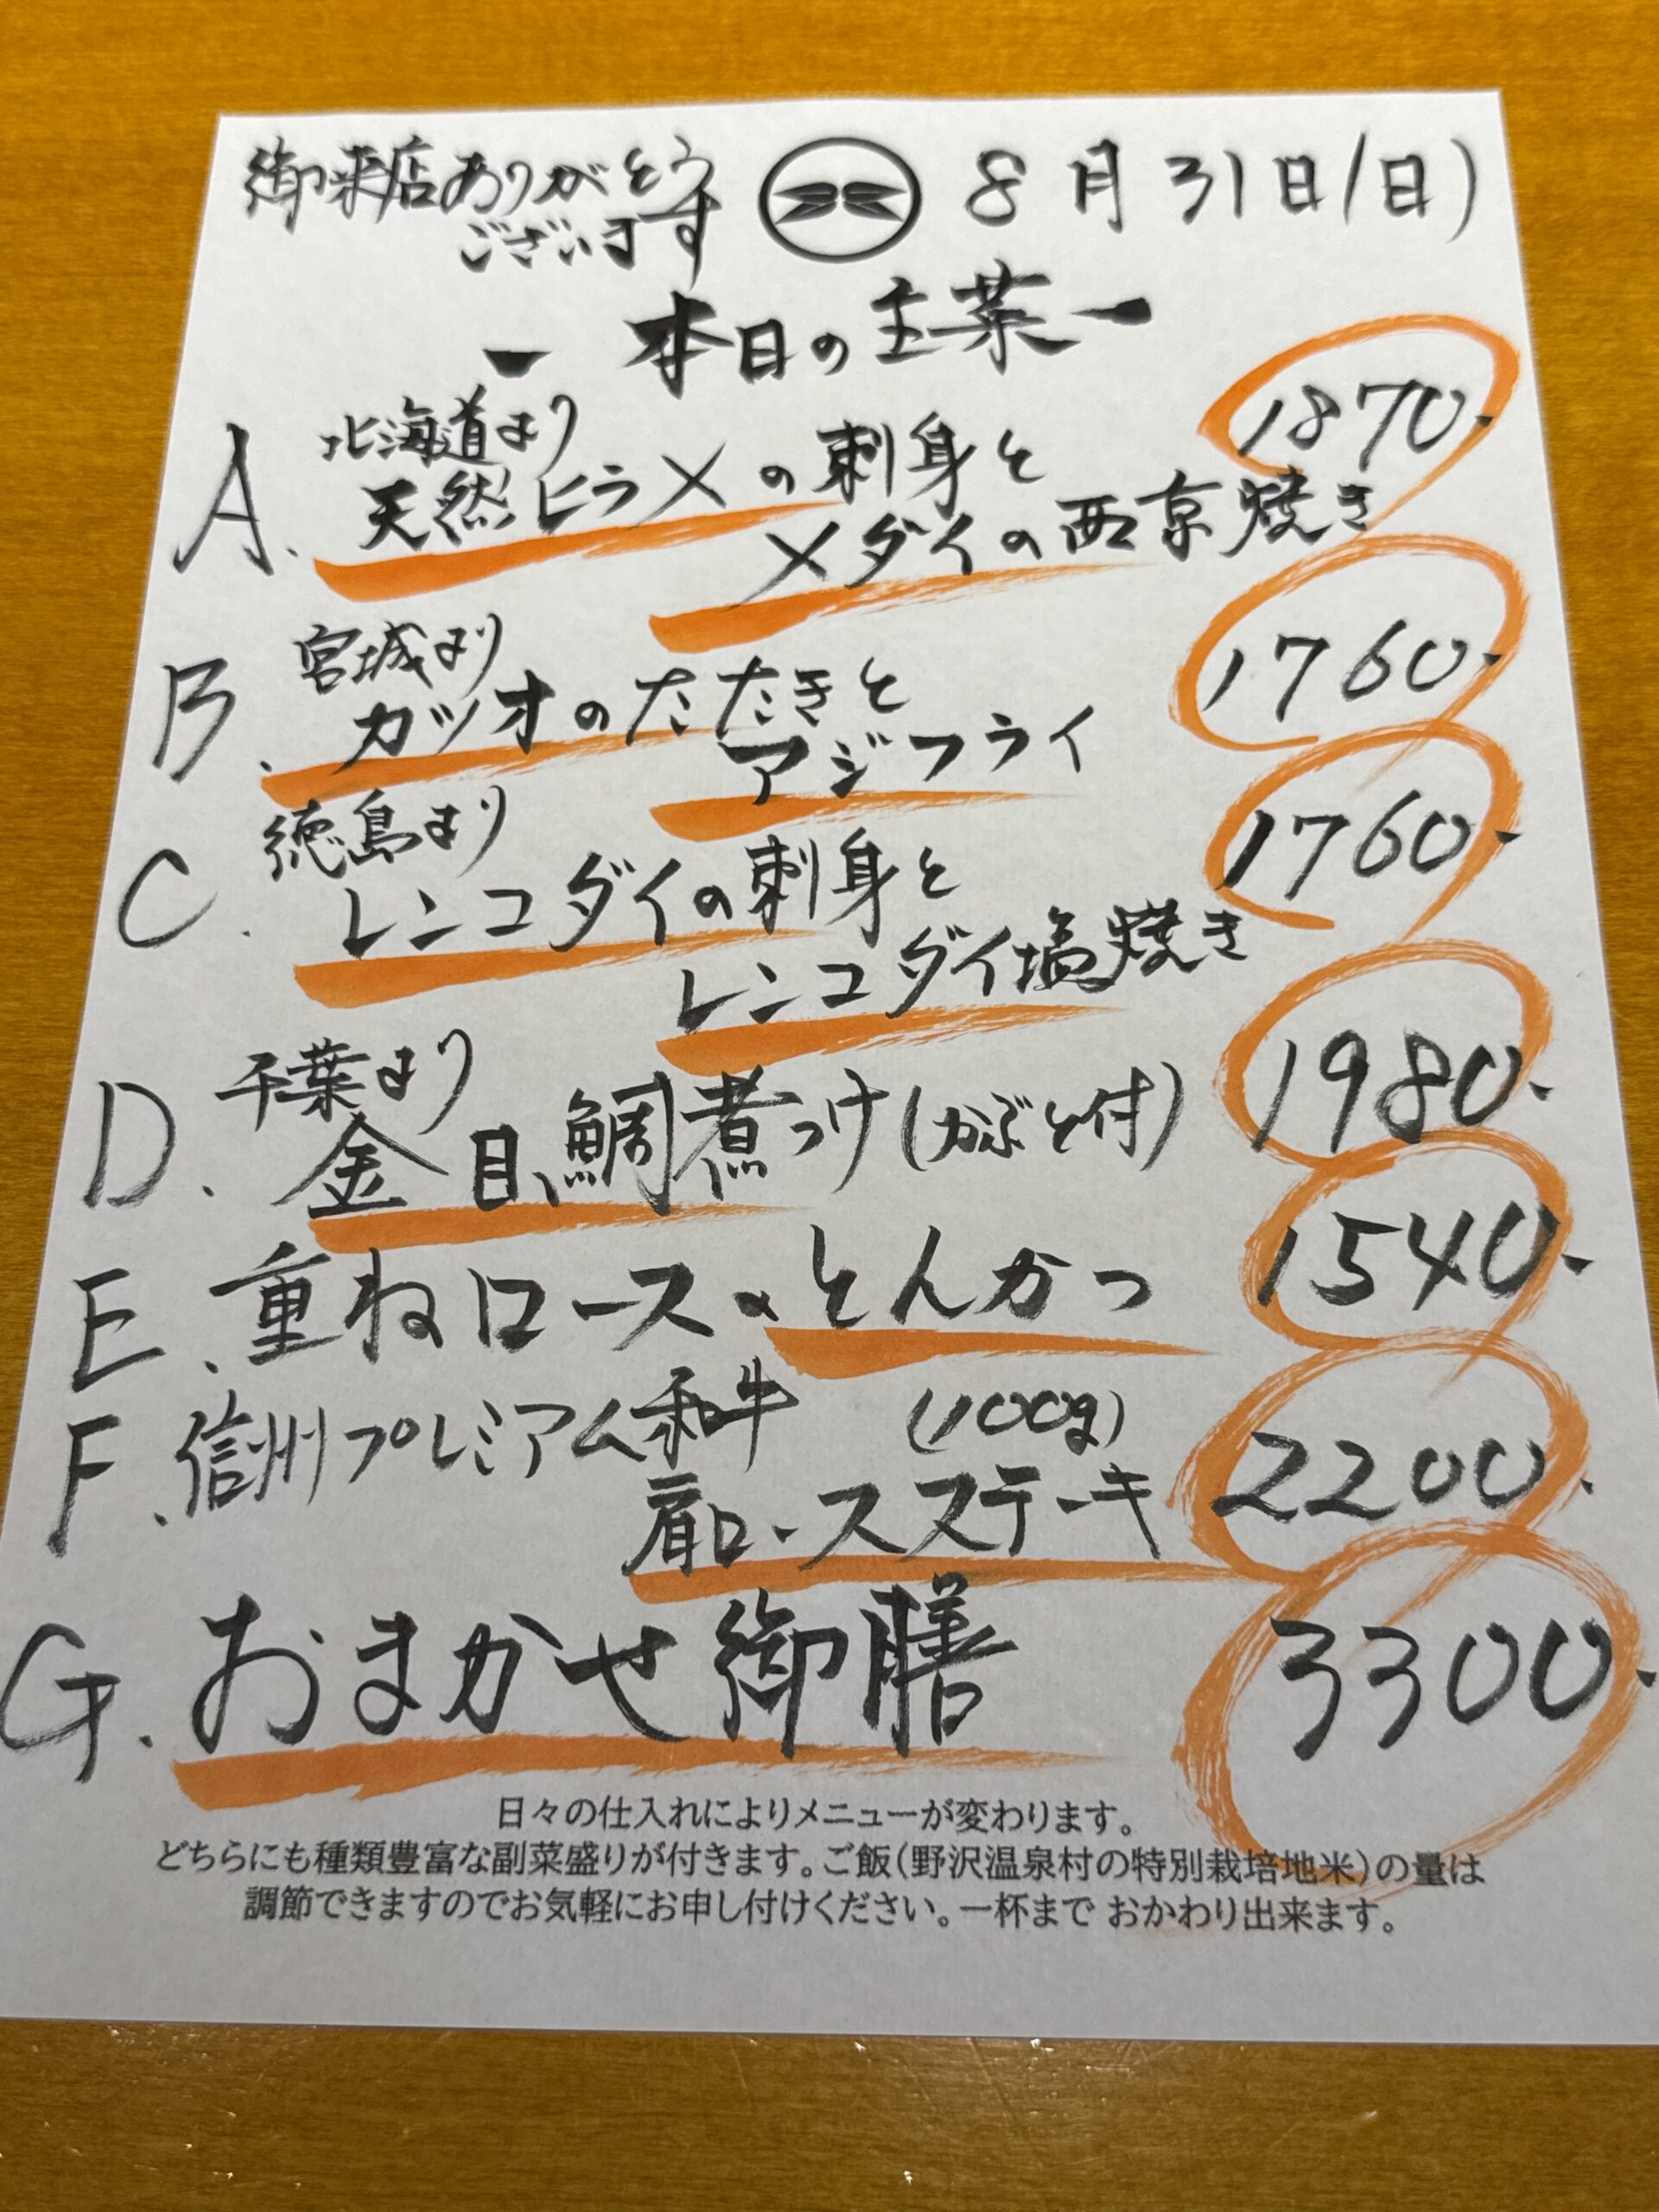 御来店ありがとう
ございます
8月31日(日)
ー 本日の主菜 ー
A. 北海道より 1870.
天然ヒラメの刺身と
メダイの西京焼き
B. 宮城より 1760.
カツオのたたきと
アジフライ
C. 徳島より 1760.
レンコダイの刺身と
レンコダイ塩焼き
D. 千葉より 1980.
金目鯛煮つけ(かぶと付)
E. 重ねロースのとんかつ 1540.
F. 信州プレミアム和牛 (100g) 2200.
肩ロースステーキ
G. おまかせ御膳 3300.
日々の仕入れによりメニューが変わります。
どちらにも種類豊富な副菜盛りが付きます。ご飯(野沢温泉村の特別栽培地米)の量は
調節できますのでお気軽にお申し付けください。一杯まで おかわり出来ます。